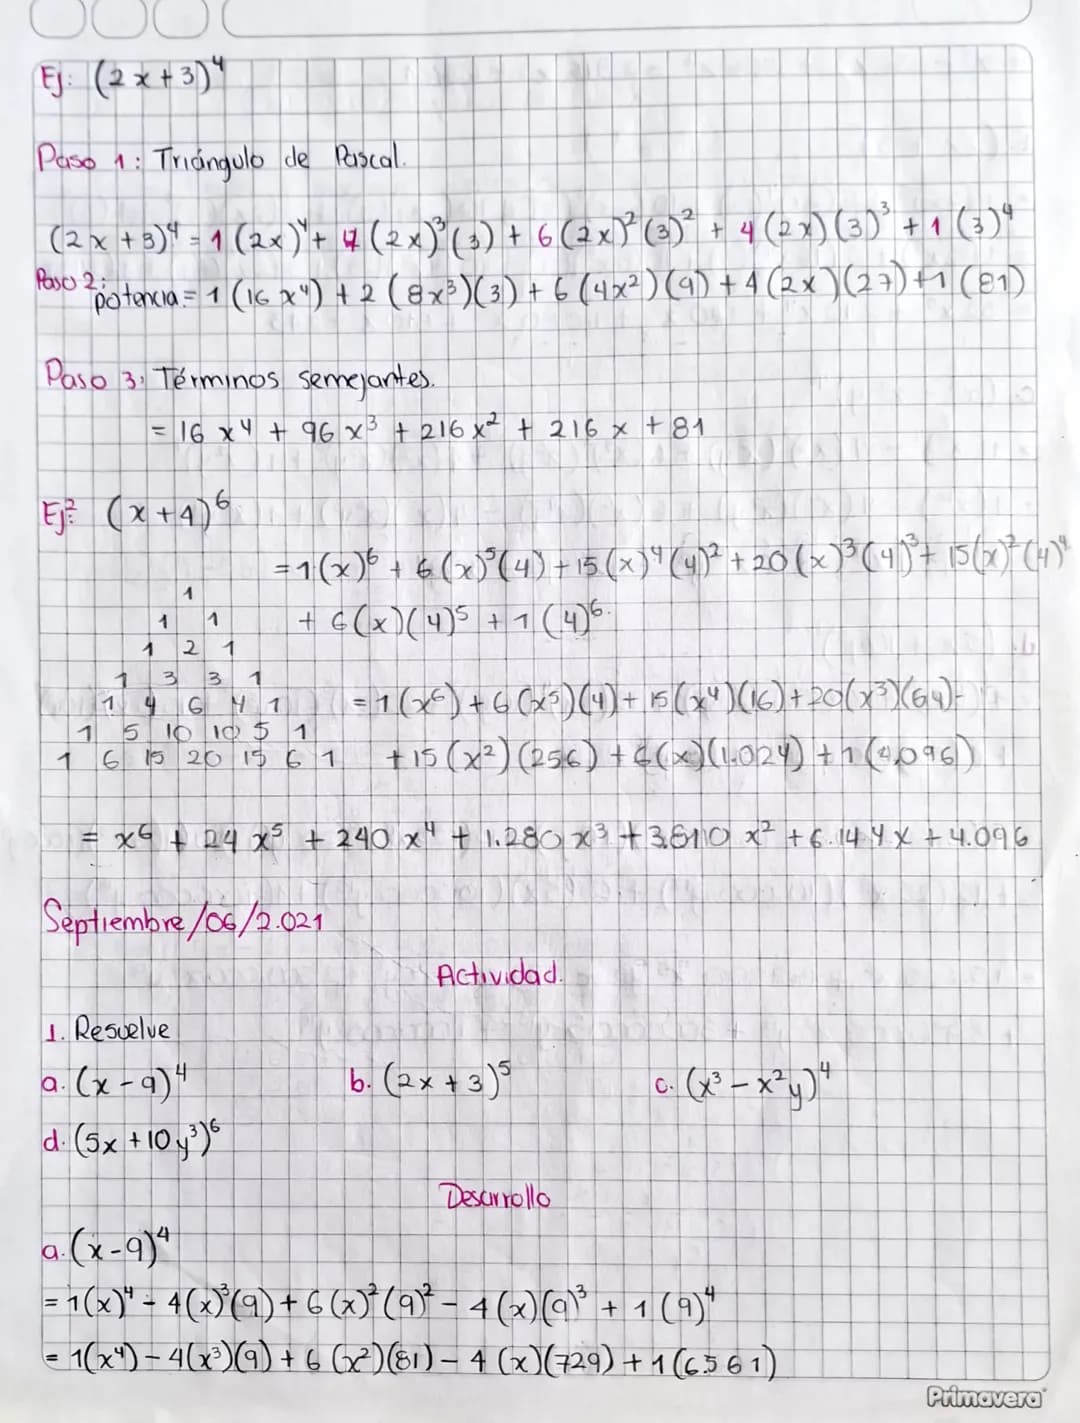 Ej: (2x+3)⁴
Paso 1: Triángulo de Pascal.
(2x+3)⁴ = 1(2x)⁴ + 4(2x)³(3) + 6(2x)²(3)² + 4(2x)(3)³ + 1(3)⁴
Paso 2:
potencia = 1(16x⁴) + 2(8x³)(3) + 6(4x²)(9) + 4(2x)(27) + 1(81)
Paso 3: Términos semejantes.
= 16x⁴ + 96x³ + 216x² + 216x + 81
Ej²: (x+4)⁶
= 1(x)⁶ + 6(x)⁵(4) + 15(x)⁴(4)² + 20(x)³(4)³ + 15(x)²(4)⁴
+ 6(x)(4)⁵ + 1(4)⁶.
1
1 1
1 2 1
1 3 3 1
1 4 6 4 1
1 5 10 10 5 1
1 6 15 20 15 6 1
= 1(x⁶) + 6(x⁵)(4) + 15(x⁴)(16) + 20(x³)(64)-
+ 15(x²)(256) + 6(x)(1.024) + 1(4.096)
= x⁶ + 24x⁵ + 240x⁴ + 1.280x³ + x² + 6.144x + 4.096
Septiembre/06/2.021
Actividad.
1. Resuelve
a. (x-9)⁴ b. (2x+3)⁵ c. (x³-x²y)⁴
d. (5x+10y³)⁶
Desarrollo
a. (x-9)⁴
= 1(x)⁴ - 4(x)³(9) + 6(x)²(9)² - 4(x)(9)³ + 1(9)⁴
= 1(x⁴) - 4(x³)(9) + 6(x²)(81) - 4(x)(729) + 1(6561)
Primavera